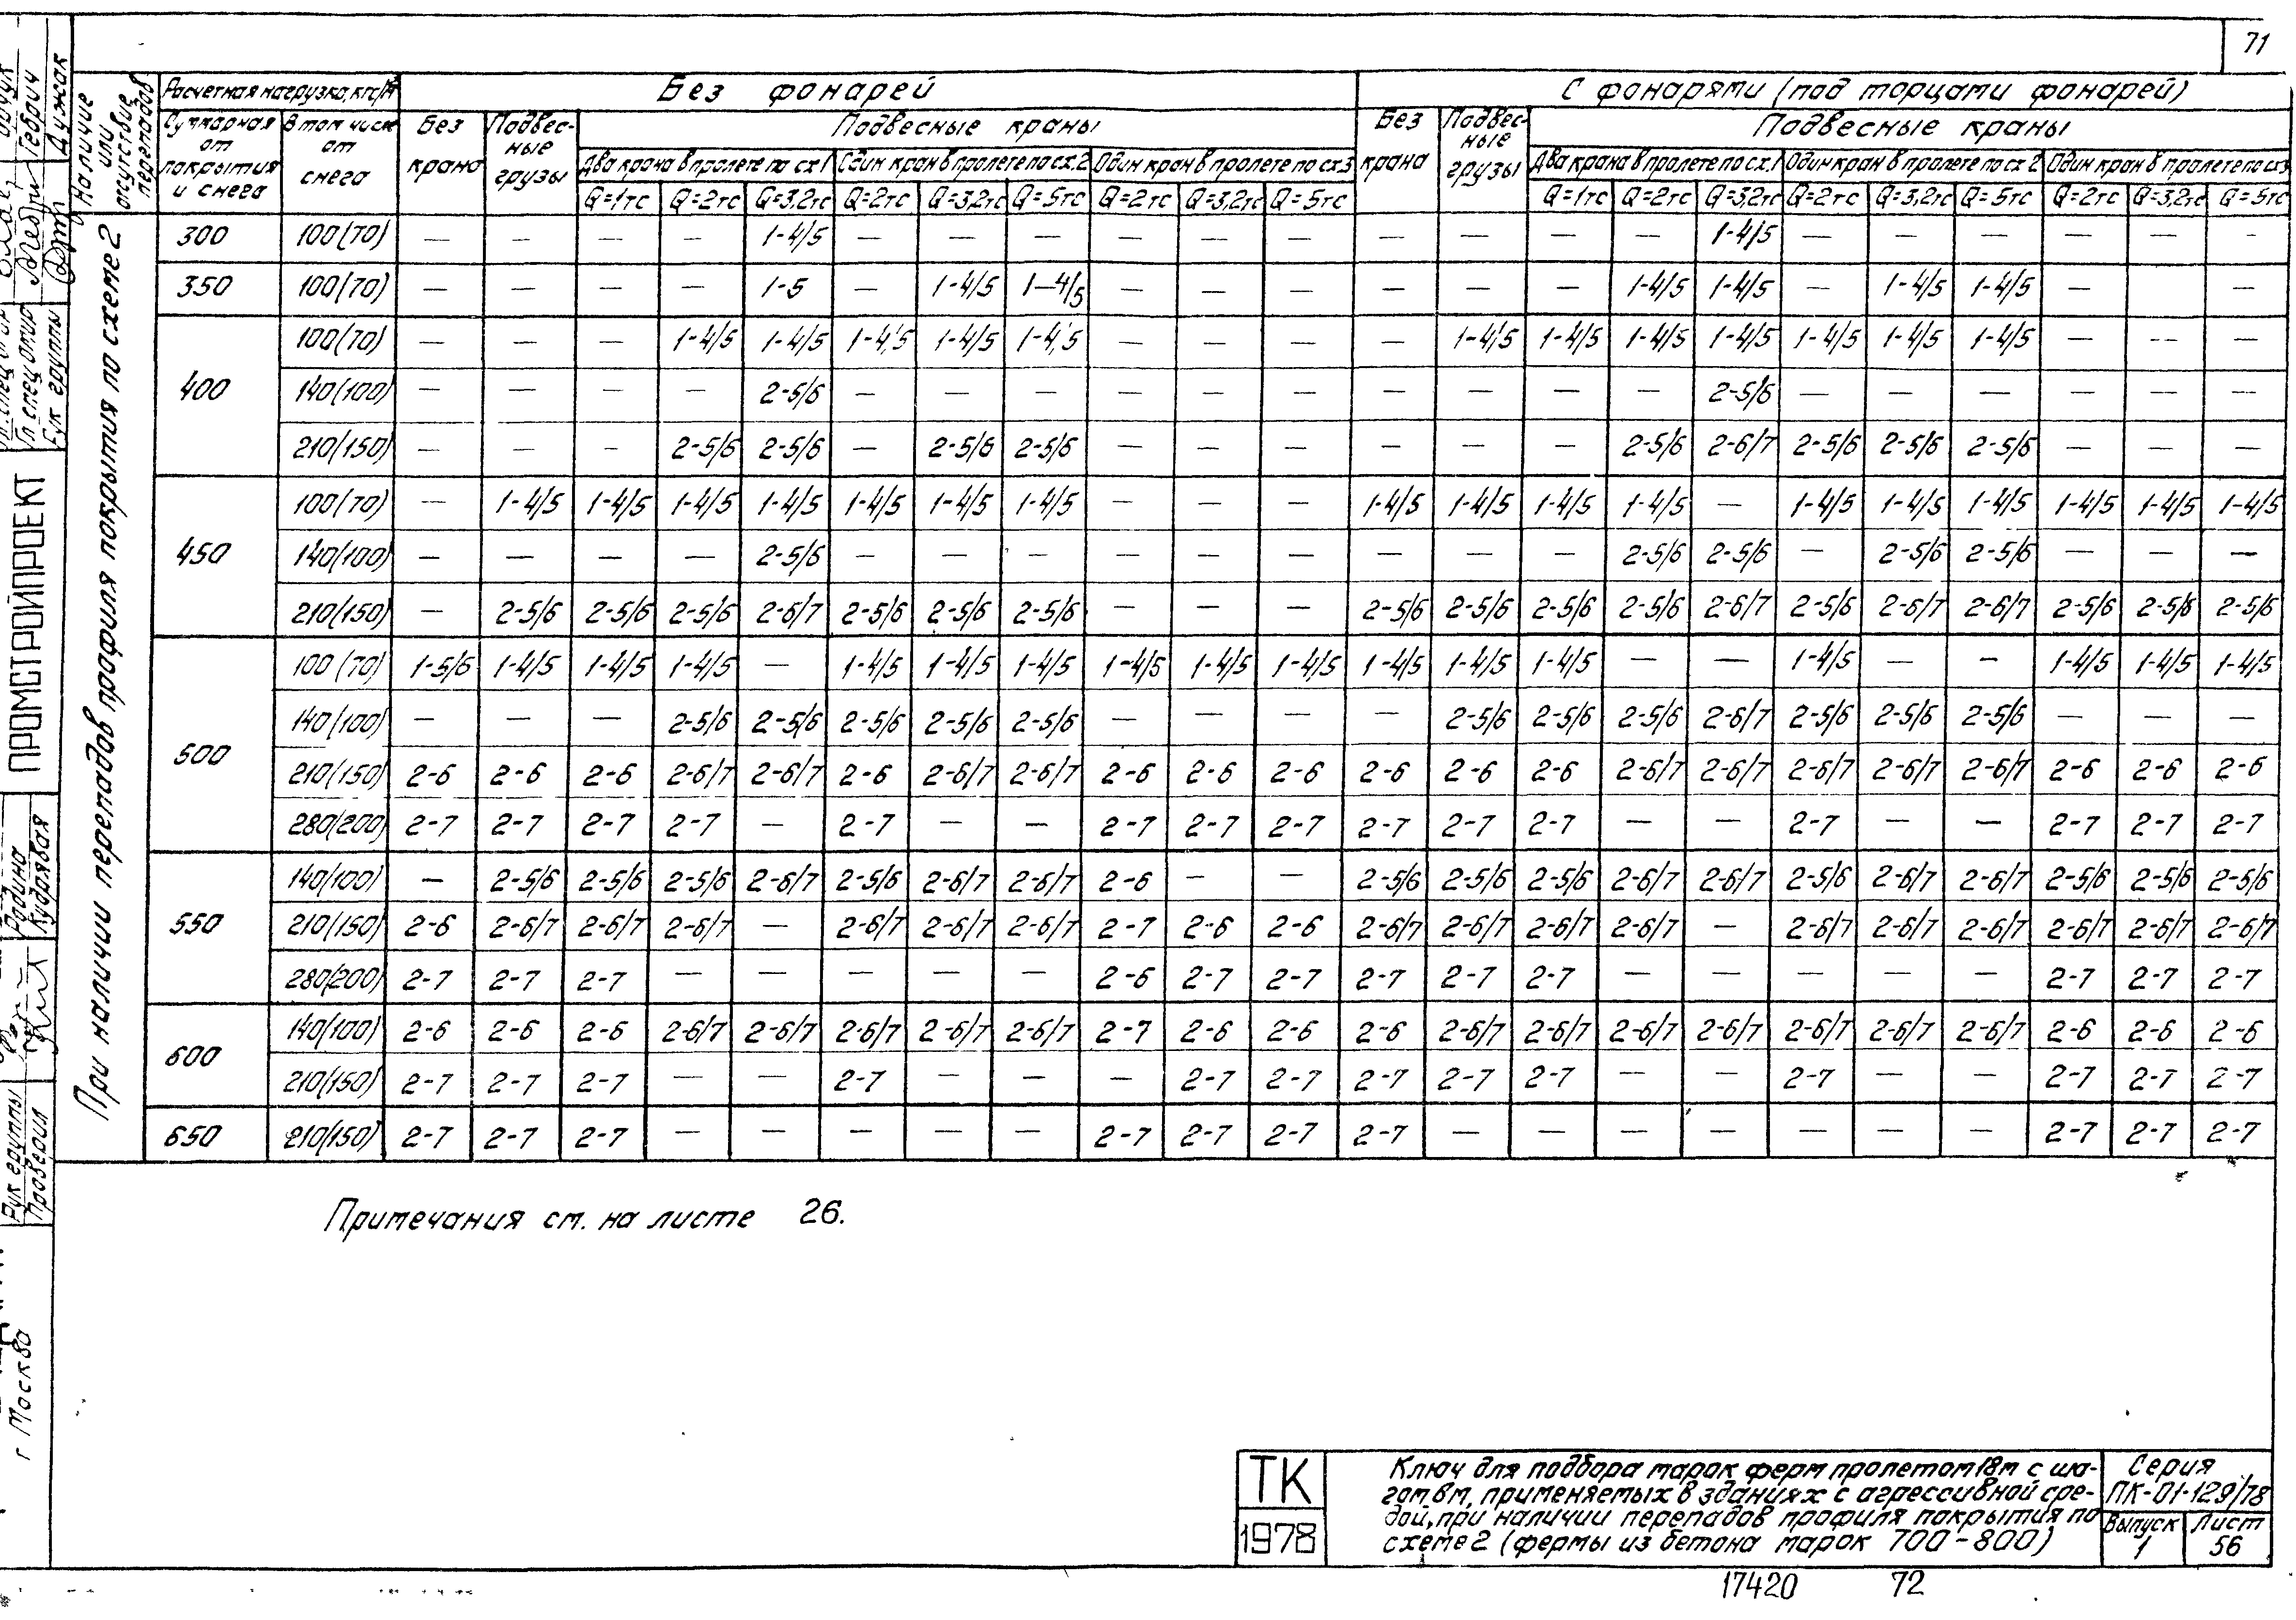 71
Наличие или отсутствие перепадов
Расчетная нагрузка, кгс/м²
Без фонарей
С фонарями (под торцами фонарей)
Суммарная от покрытия и снега
В том числе от снега
Без крана
Подвесные грузы
Подвесные краны
Без крана
Подвесные грузы
Подвесные краны
Два крана в пролете по сх1
Один кран в пролете по сх.2
Один кран в пролете по сх.3
Два крана в пролете по сх.1
Один кран в пролете по сх 2
Один кран в пролете по сх3
Q=1тс Q=2тс Q=3,2тс Q=2тс Q=3,2тс Q=5тс Q=2тс Q=3,2тс Q=5тс Q=1тс Q=2тс Q=3,2тс Q=2тс Q=3,2тс Q=5тс Q=2тс Q=3,2тс Q=5тс
При наличии перепадов профиля покрытия по схеме 2
300 100(70) — — — — 1-4/5 — — — — — — — — — — 1-4/5 — — — — — -
350 100(70) — — — — 1-5 — 1-4/5 1-4/5 — — — — — — 1-4/5 1-4/5 — 1-4/5 1-4/5 — —
400 100(70) — — — 1-4/5 1-4/5 1-4/5 1-4/5 1-4/5 — — — — 1-4/5 1-4/5 1-4/5 1-4/5 1-4/5 1-4/5 1-4/5 — — —
140(100) — — — — 2-5/6 — — — — — — — — — — 2-5/6 — — — — — —
210(150) — — — 2-5/6 2-5/6 — 2-5/6 2-5/6 — — — — — — 2-5/6 2-6/7 2-5/6 2-5/6 2-5/6 — — —
450 100(70) — 1-4/5 1-4/5 1-4/5 1-4/5 1-4/5 1-4/5 1-4/5 — — — 1-4/5 1-4/5 1-4/5 1-4/5 — 1-4/5 1-4/5 1-4/5 1-4/5 1-4/5 1-4/5
140(100) — — — — 2-5/6 — — — — — — — — — 2-5/6 2-5/6 — 2-5/6 2-5/6 — — —
210(150) — 2-5/6 2-5/6 2-5/6 2-6/7 2-5/6 2-5/6 2-5/6 — — — 2-5/6 2-5/6 2-5/6 2-5/6 2-6/7 2-5/6 2-6/7 2-6/7 2-5/6 2-5/6 2-5/6
500 100 (70) 1-5/6 1-4/5 1-4/5 1-4/5 — 1-4/5 1-4/5 1-4/5 1-4/5 1-4/5 1-4/5 1-4/5 1-4/5 1-4/5 — — 1-4/5 — — 1-4/5 1-4/5 1-4/5
140(100) — — — 2-5/6 2-5/6 2-5/6 2-5/6 2-5/6 — — — — 2-5/6 2-5/6 2-5/6 2-6/7 2-5/6 2-5/6 2-5/6 — — —
210(150) 2-6 2-6 2-6 2-6/7 2-6/7 2-6 2-6/7 2-6/7 2-6 2-6 2-6 2-6 2-6 2-6 2-6/7 2-6/7 2-6/7 2-6/7 2-6/7 2-6 2-6 2-6
280(200) 2-7 2-7 2-7 2-7 — 2-7 — — 2-7 2-7 2-7 2-7 2-7 2-7 — — 2-7 — — 2-7 2-7 2-7
550 140(100) — 2-5/6 2-5/6 2-5/6 2-6/7 2-5/6 2-6/7 2-6/7 2-6 — — 2-5/6 2-5/6 2-5/6 2-6/7 2-6/7 2-5/6 2-6/7 2-6/7 2-5/6 2-5/6 2-5/6
210(150) 2-6 2-6/7 2-6/7 2-6/7 — 2-6/7 2-6/7 2-6/7 2-7 2-6 2-6 2-6/7 2-6/7 2-6/7 2-6/7 — 2-6/7 2-6/7 2-6/7 2-6/7 2-6/7 2-6/7
280(200) 2-7 2-7 2-7 — — — — — 2-6 2-7 2-7 2-7 2-7 2-7 — — — — — 2-7 2-7 2-7
600 140(100) 2-6 2-6 2-6 2-6/7 2-6/7 2-6/7 2-6/7 2-6/7 2-7 2-6 2-6 2-6 2-6/7 2-6/7 2-6/7 2-6/7 2-6/7 2-6/7 2-6/7 2-6 2-6 2-6
210(150) 2-7 2-7 2-7 — — 2-7 — — — 2-7 2-7 2-7 2-7 2-7 — — 2-7 — — 2-7 2-7 2-7
650 210(150) 2-7 2-7 2-7 — — — — — 2-7 2-7 2-7 2-7 — — — — — — — 2-7 2-7 2-7
Примечания см. на листе 26.
Гл спец отир
Рук группы
Гебрич
Дужак
ПРОМСТРОЙПРОЕКТ
Родина
Кудрявая
Рук группы
Проверил
г Москва
ТК
1978
Ключ для подбора марок ферм пролетом 18м с ша-
гом 6м, применяемых в зданиях с агрессивной сре-
дой, при наличии перепадов профиля покрытия по
схеме 2 (фермы из бетона марок 700-800)
Серия
ПК-01-129/78
Выпуск 1
Лист 56
17420 72